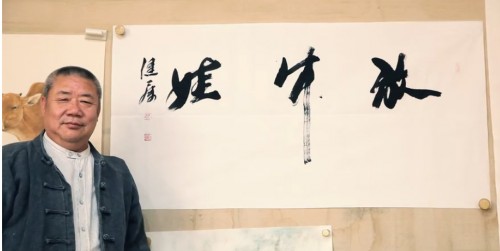 放牛娃